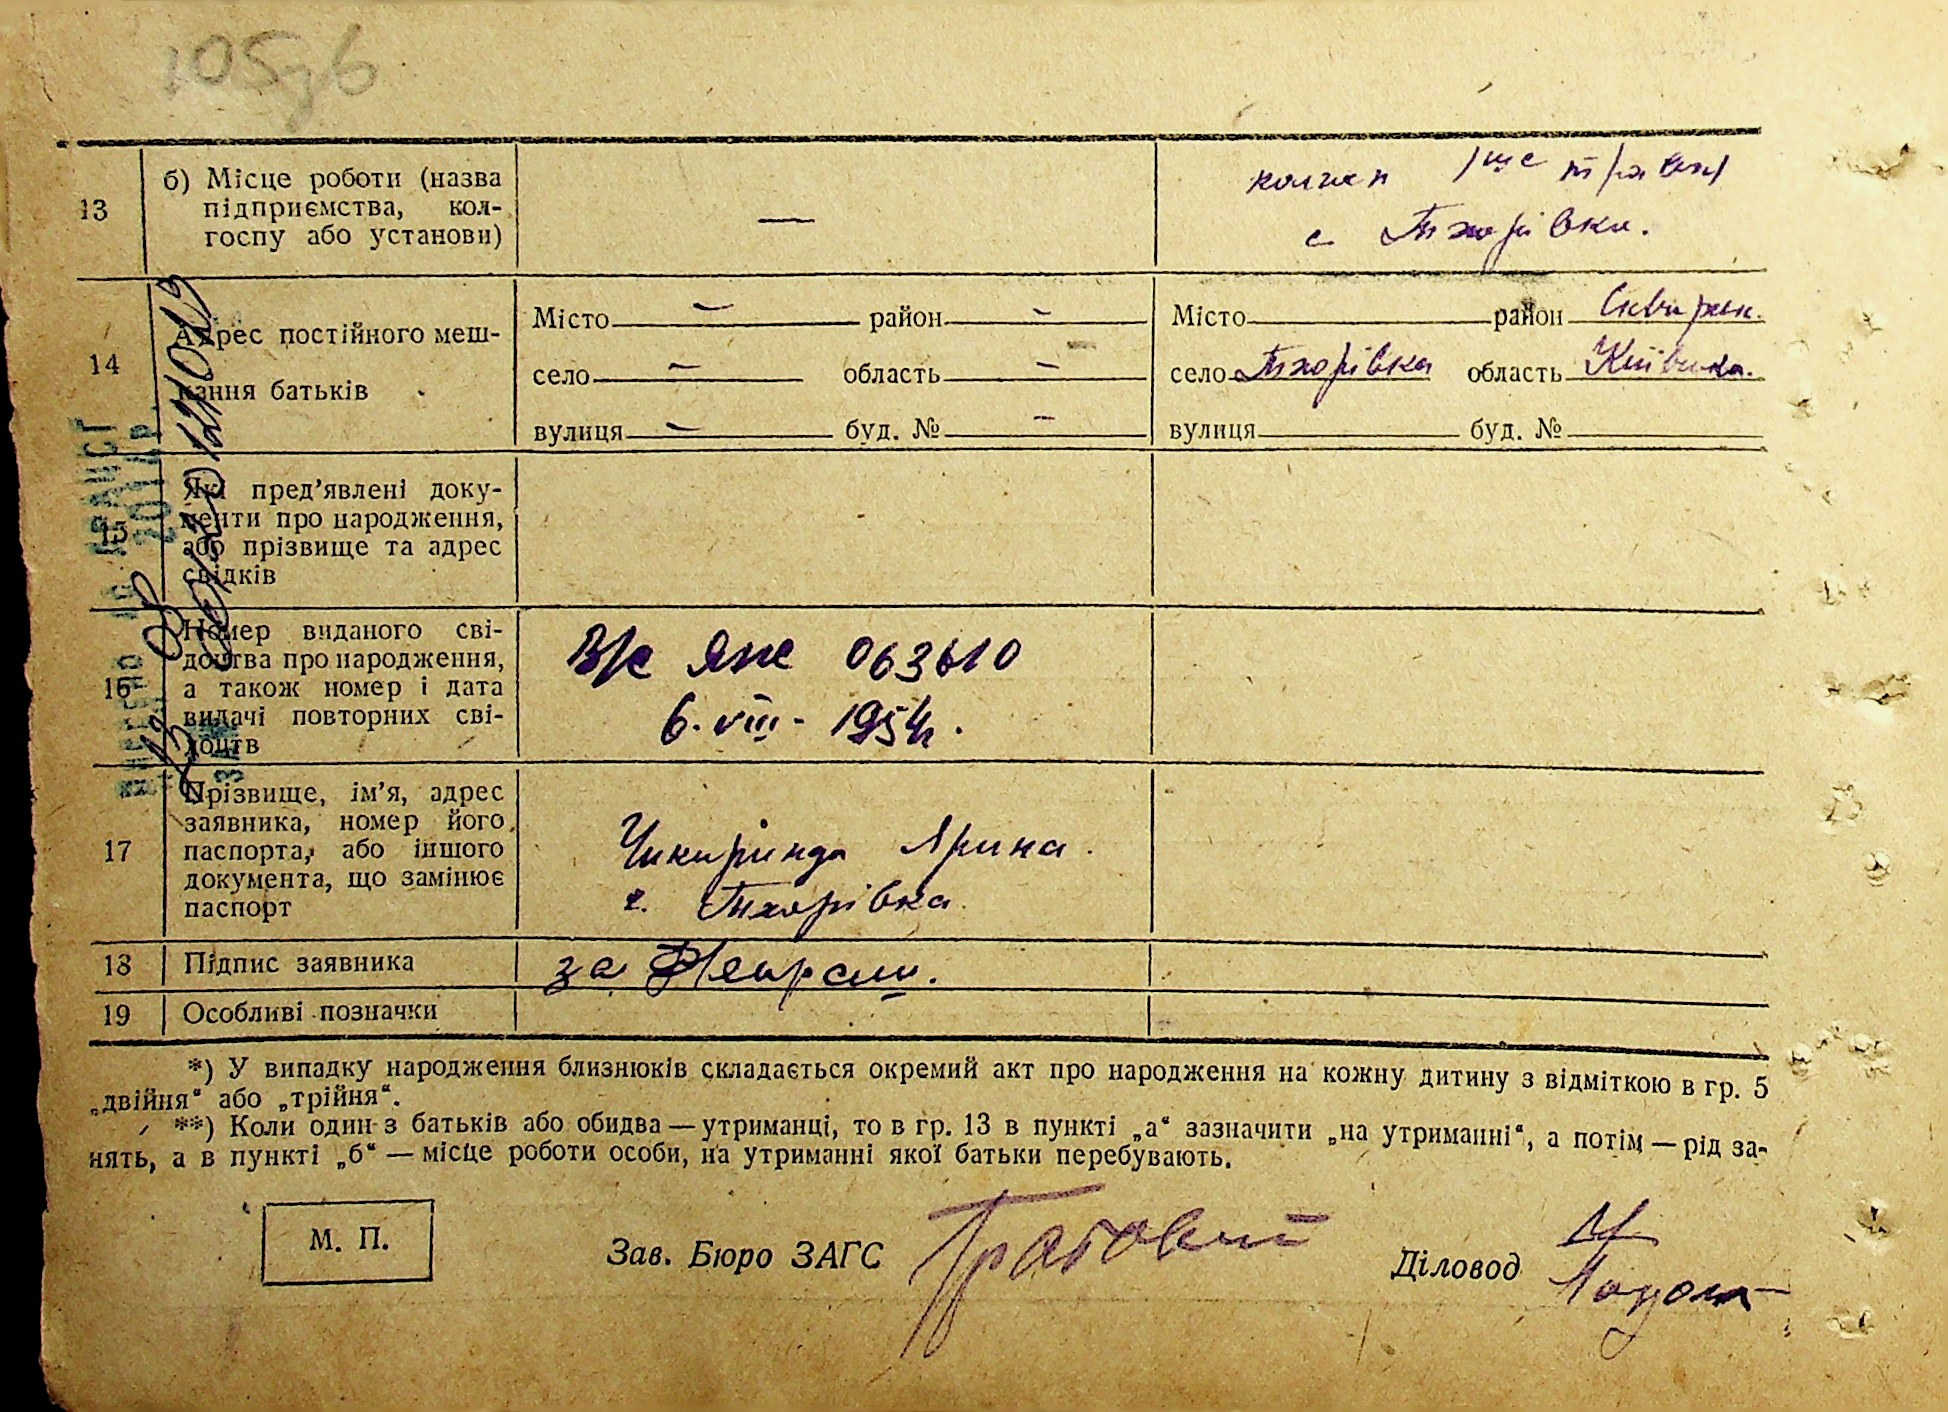 13
б) Місце роботи (назва
підприємства, кол-
госпу або установи)
—
колгосп 1ше травня
с Тхорівка.
14
Адрес постійного меш-
кання батьків
Місто — район —
село — область —
вулиця — буд. № —
Місто район Сквирськ.
село Тхорівка область Київська.
вулиця буд. №
15
Які пред'явлені доку-
менти про народження,
або прізвище та адрес
свідків
16
Номер виданого сві-
доцтва про народження,
а також номер і дата
видачі повторних сві-
доцтв
063610
6. VIII - 1954р.
17
Прізвище, ім'я, адрес
заявника, номер його
паспорта, або іншого
документа, що замінює
паспорт
Чикиринда Ярина.
с. Тхорівка.
18 Підпис заявника
за
19 Особливі позначки
*) У випадку народження близнюків складається окремий акт про народження на кожну дитину з відміткою в гр. 5
„двійня“ або „трійня“.
**) Коли один з батьків або обидва — утриманці, то в гр. 13 в пункті „а“ зазначити „на утриманні“, а потім — рід за-
нять, а в пункті „б“ — місце роботи особи, на утриманні якої батьки перебувають.
М. П.
Зав. Бюро ЗАГС
Діловод